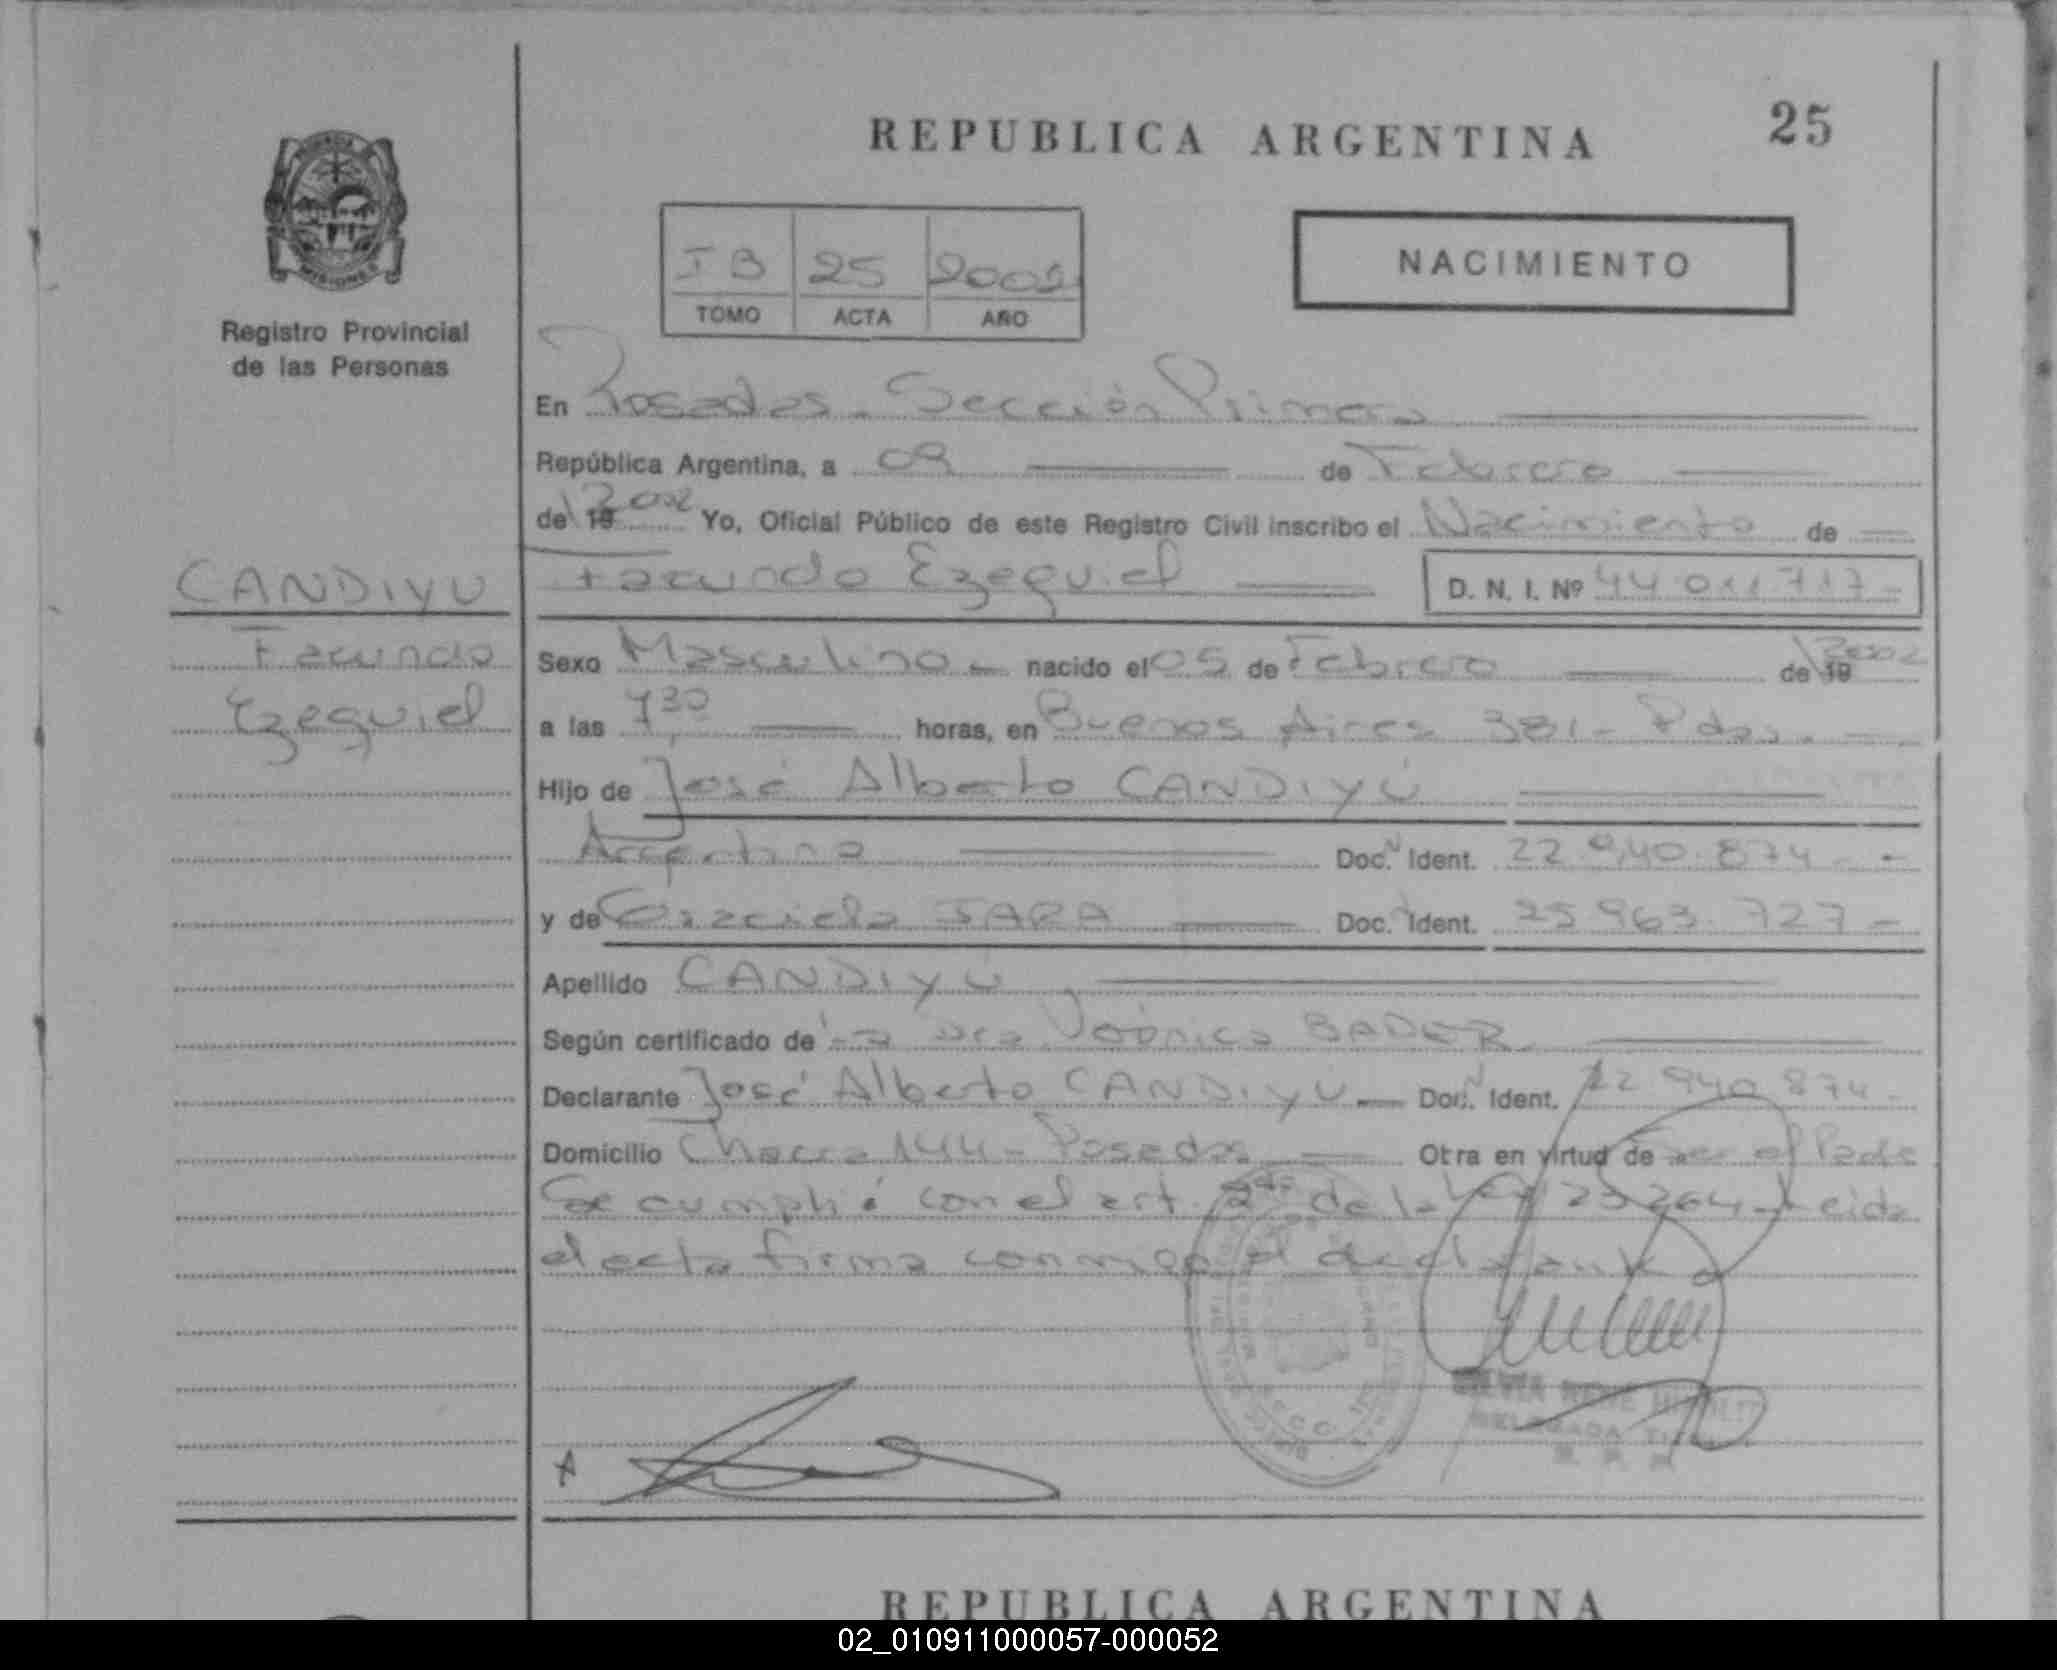 25
REPUBLICA ARGENTINA
NACIMIENTO
IB 25 2002
TOMO ACTA AÑO
MISIONES
Registro Provincial
de las Personas
En Posadas - Sección Primera
República Argentina, a 08 de Febrero
de 19 2002 Yo, Oficial Público de este Registro Civil inscribo el Nacimiento de
CANDIYU
Facundo
Ezequiel
Facundo Ezequiel D. N. I. Nº 44.011.717-
Sexo Masculino - nacido el 05 de Febrero de 19 2002
a las 7,30 horas, en Buenos Aires 381 - Pdas.
Hijo de José Alberto CANDIYÚ
Argentino Doc. N Ident. 22.940.874 -
y de Graciela JARA Doc. Ident. 25.963.727 -
Apellido CANDIYÚ
Según certificado de la Dra Verónica BADER
Declarante José Alberto CANDIYU - Doc. N Ident. 22 940 874 -
Domicilio Chacra 144 - Posadas Otra en virtud de ser el Padre
Se cumplió con el art. 2do de la Ley 23264 - Leida
el acta firma conmigo el declarante
DELEGADA
REPUBLICA ARGENTINA
02_010911000057-000052